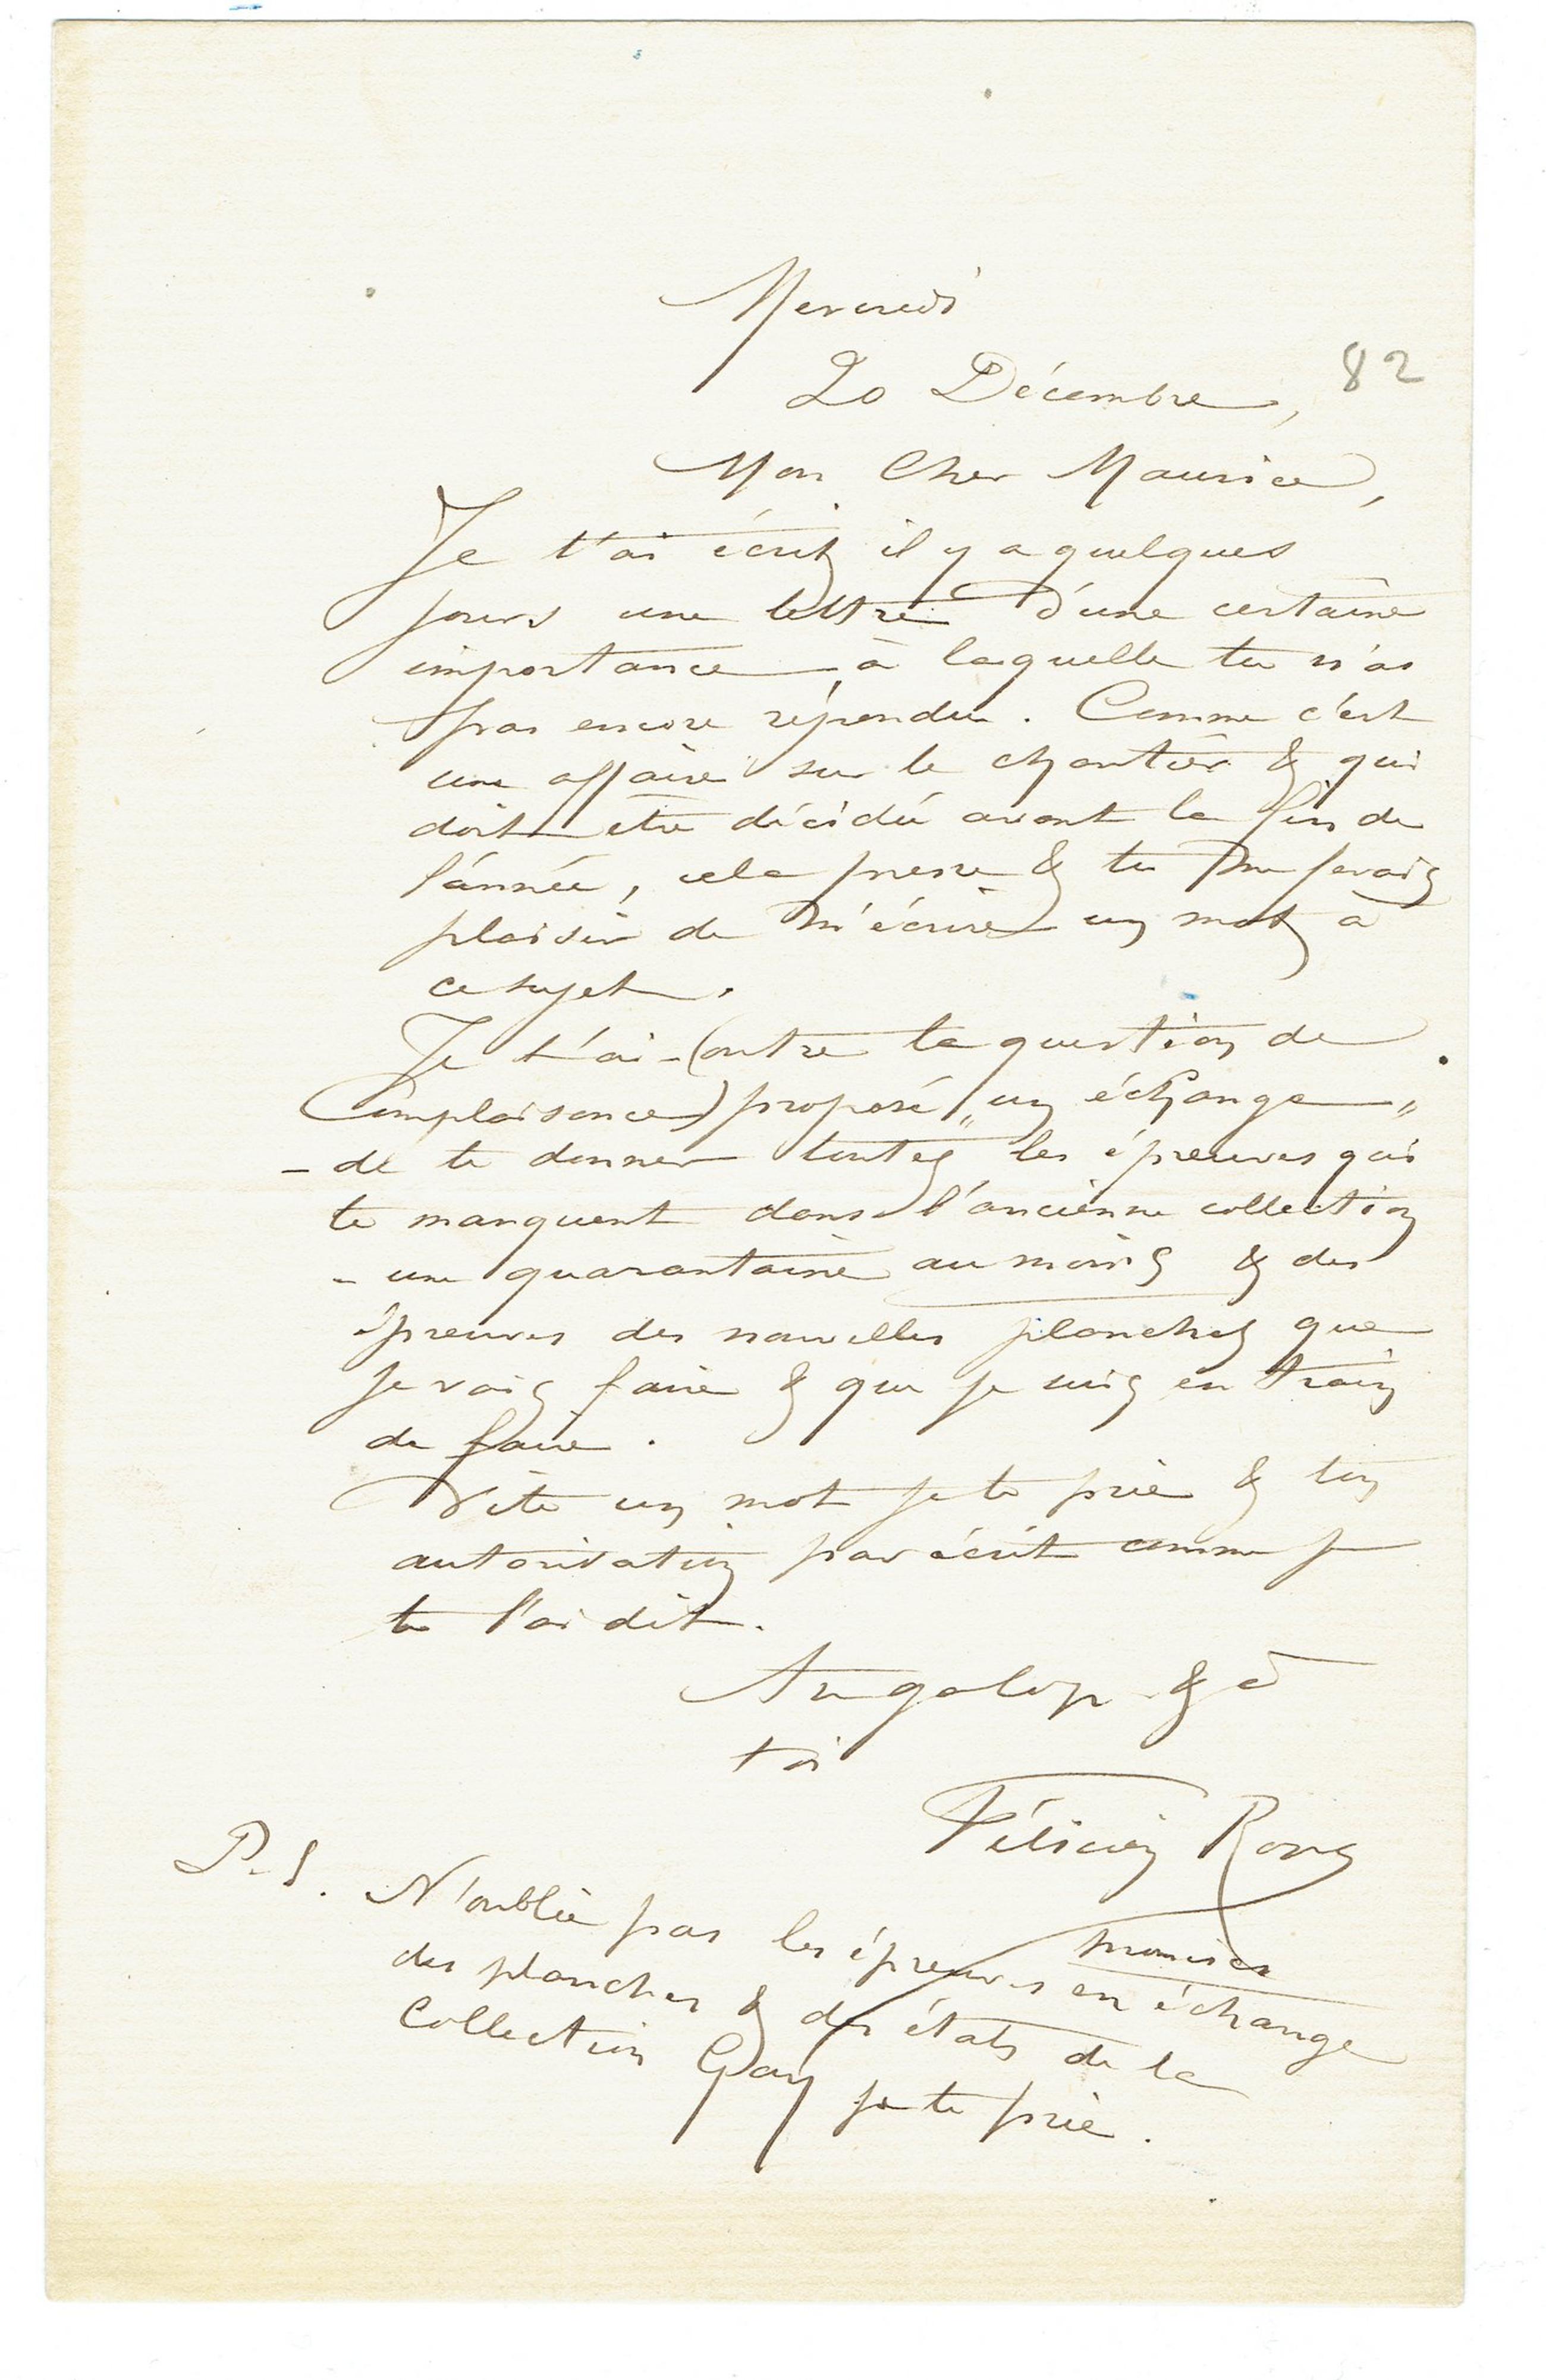 Mercredi
20 Décembre, 82
Mon Cher Maurice,
Je t'ai écrit il y a quelques
jours une lettre d'une certaine
importance à laquelle tu n'as
pas encore répondu. Comme c'est
une affaire sur le chantier & qui
doit etre décidée avant la fin de
l'année, cela presse & tu me ferais
plaisir de m'écrire un mot à
ce sujet.
Je t'ai - (outre la question de
Complaisance) proposé „un échange„
- de te donner toutes les épreuves qui
te manquent dans l'ancienne collection
- une quarantaine au moins & des
épreuves des nouvelles planches que
je vais faire & que je suis en train
de faire.
Vite un mot je te prie & ton
autorisation par écrit comme je
te l'ai dit.
Au galop & à
toi
Félicien Rops
P.S. N'oublie pas les épreuves promises en échange
des planches & des états de la
Collection Gay je te prie.